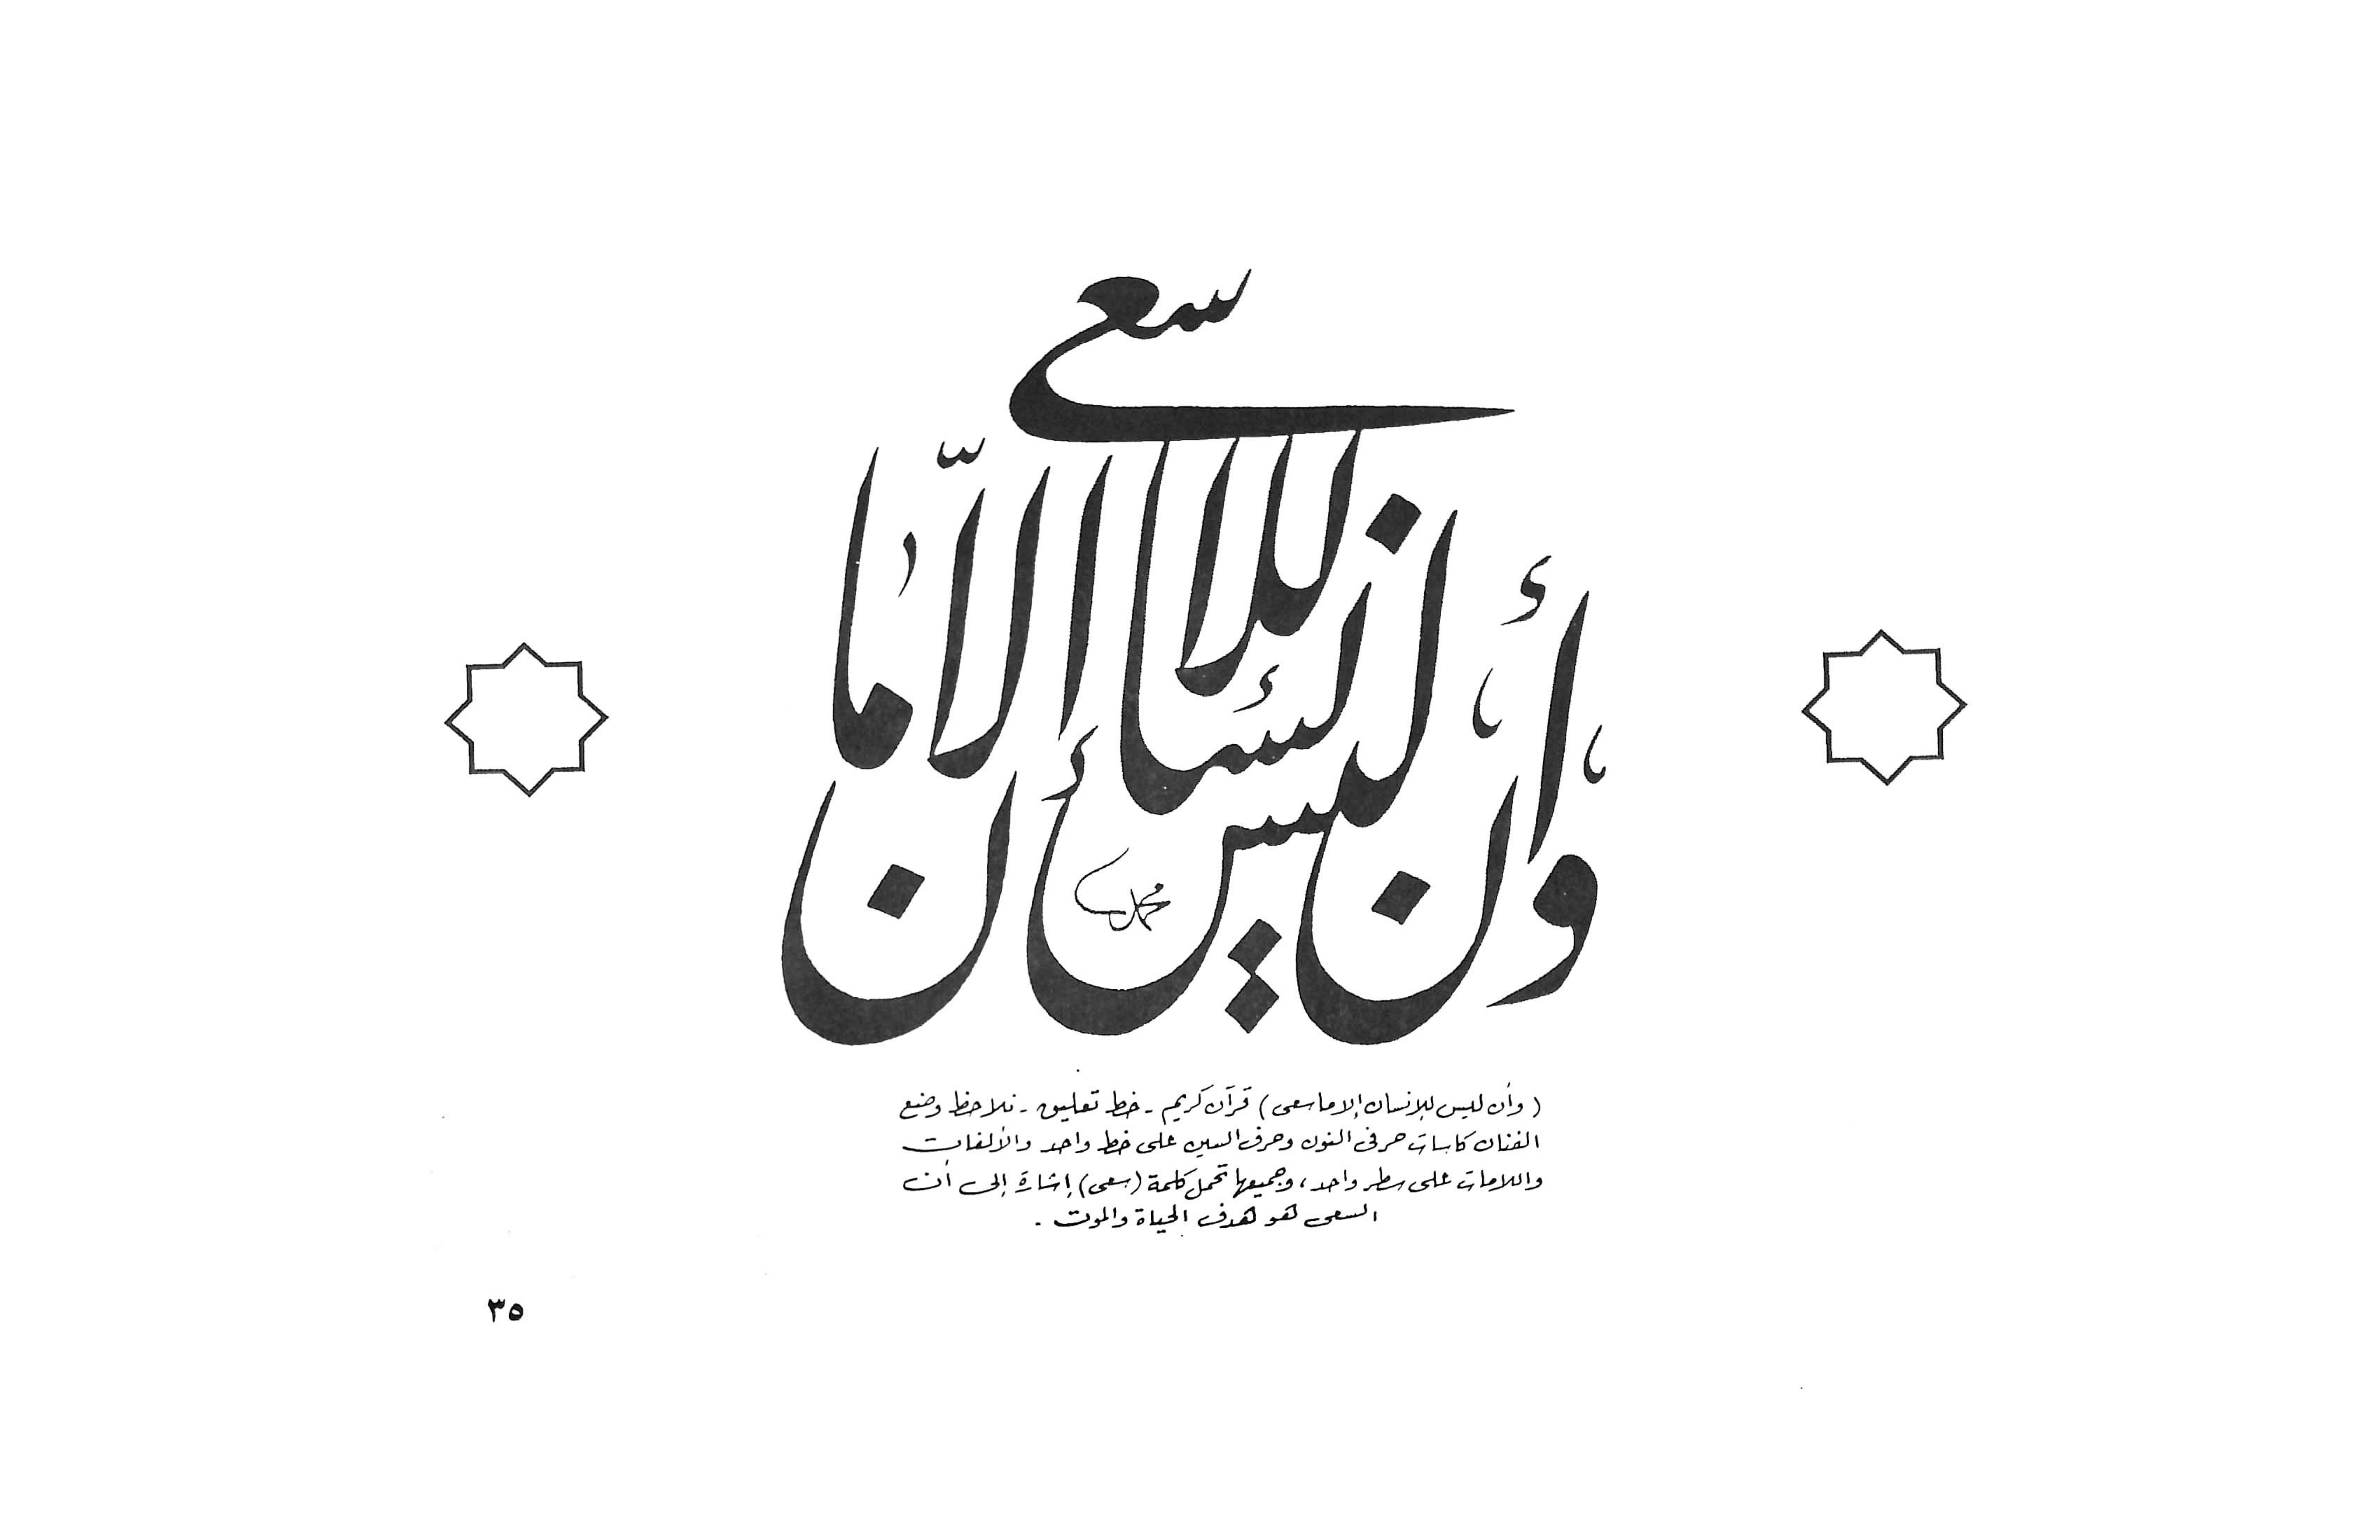 وأن ليس للإنسان إلّا ما سعى
محمد
(وأن ليس للإنسان إلا ما سعى) قرآن كريم - خط تعليق - نلاحظ وضع
الفنان كاسات حرفي النون وحرف السين على خط واحد والألفات
واللامات على سطر واحد، وجميعها تحمل كلمة (سعى) إشارة إلى أن
السعي هو هدف الحياة والموت .
٣٥